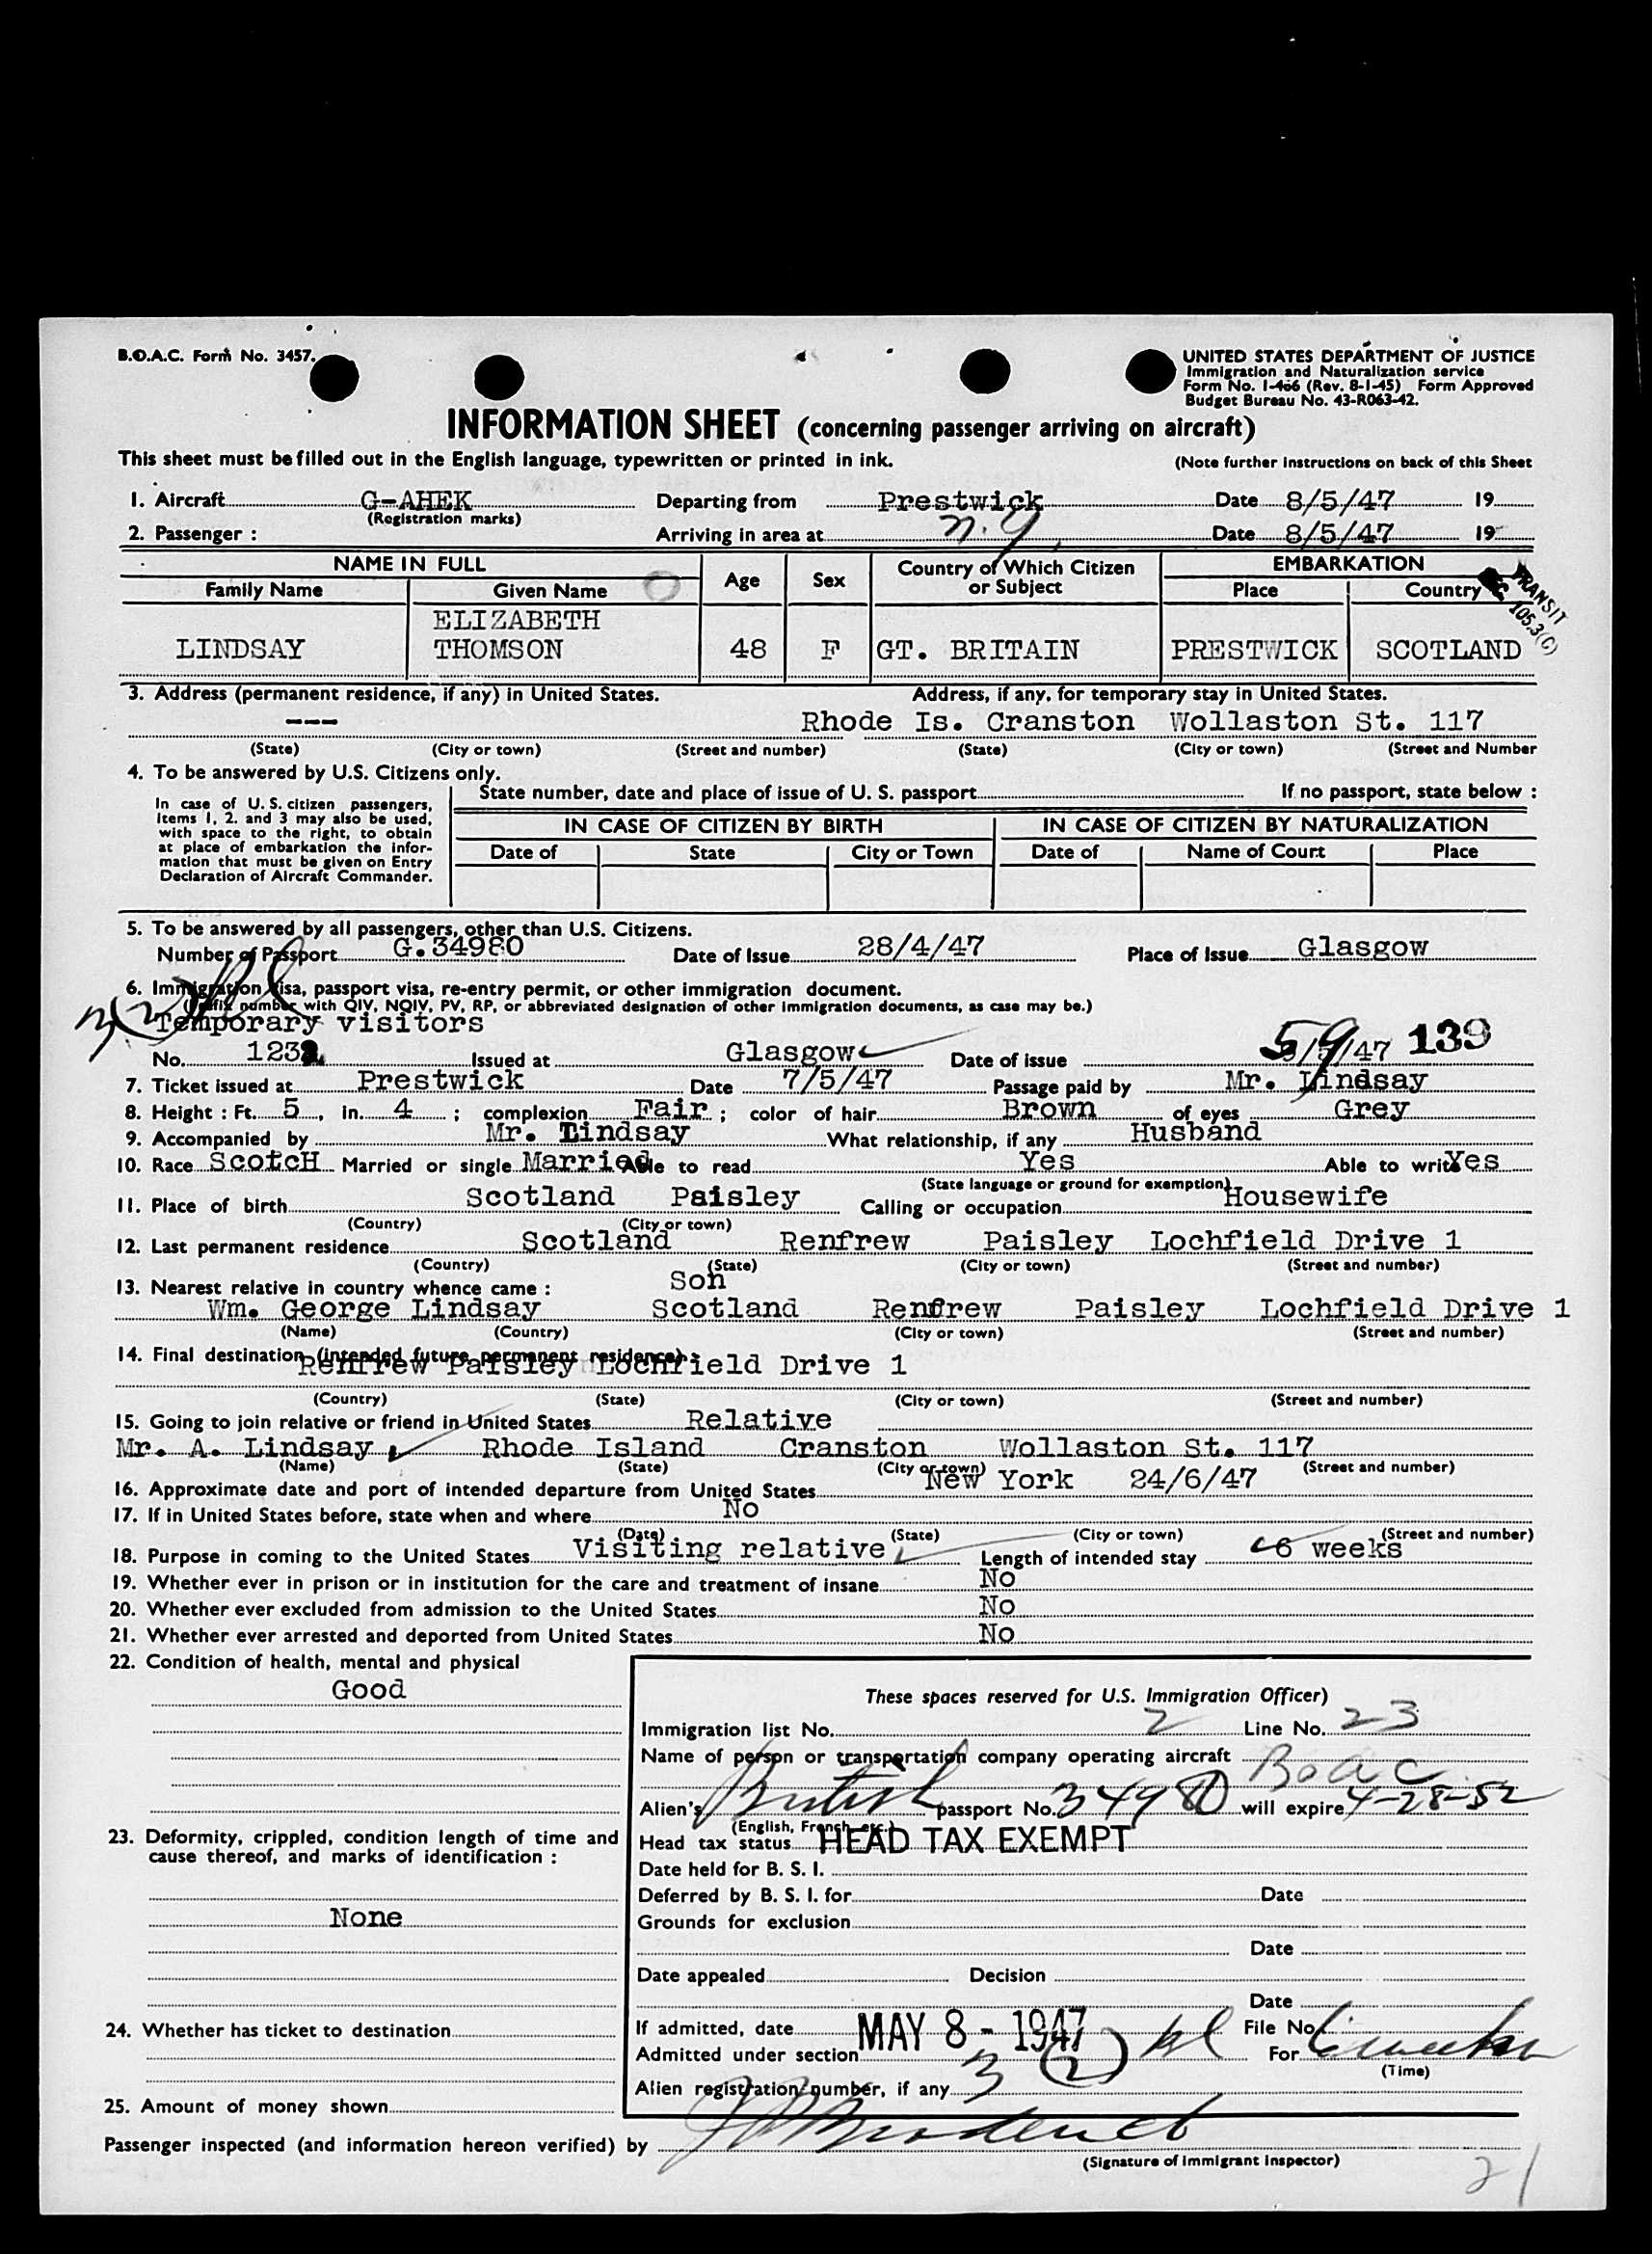 B.O.A.C. Form No. 3457.
UNITED STATES DEPARTMENT OF JUSTICE
Immigration and Naturalization service
Form No. I-466 (Rev. 8-1-45) Form Approved
Budget Bureau No. 43-R063-42.
INFORMATION SHEET (concerning passenger arriving on aircraft)
This sheet must be filled out in the English language, typewritten or printed in ink. (Note further instructions on back of this Sheet
1. Aircraft G-AHEK Departing from Prestwick Date 8/5/47 19
(Registration marks)
2. Passenger : Arriving in area at N.Y. Date 8/5/47 19
NAME IN FULL Age Sex Country of Which Citizen or Subject EMBARKATION
Family Name Given Name Place Country
TRANSIT
SEC 105.3(C)
ELIZABETH
LINDSAY THOMSON 48 F GT. BRITAIN PRESTWICK SCOTLAND
3. Address (permanent residence, if any) in United States. Address, if any, for temporary stay in United States.
--- Rhode Is. Cranston Wollaston St. 117
(State) (City or town) (Street and number) (State) (City or town) (Street and Number
4. To be answered by U.S. Citizens only.
In case of U.S. citizen passengers, Items 1, 2. and 3 may also be used, with space to the right, to obtain at place of embarkation the information that must be given on Entry Declaration of Aircraft Commander.
State number, date and place of issue of U. S. passport If no passport, state below :
IN CASE OF CITIZEN BY BIRTH IN CASE OF CITIZEN BY NATURALIZATION
Date of State City or Town Date of Name of Court Place
5. To be answered by all passengers, other than U.S. Citizens.
Number of Passport G.34980 Date of Issue 28/4/47 Place of Issue Glasgow
6. Immigration Visa, passport visa, re-entry permit, or other immigration document.
(Prefix number with QIV, NQIV, PV, RP, or abbreviated designation of other immigration documents, as case may be.)
3(2)
Temporary visitors
No. 123 Issued at Glasgow Date of issue /5/47 139
7. Ticket issued at Prestwick Date 7/5/47 Passage paid by Mr. Lindsay
8. Height : Ft. 5, in. 4 ; complexion Fair ; color of hair Brown of eyes Grey
9. Accompanied by Mr. Lindsay What relationship, if any Husband
10. Race ScotcH Married or single Married Able to read Yes Able to write Yes
(State language or ground for exemption)
11. Place of birth Scotland Paisley Calling or occupation Housewife
(Country) (City or town)
12. Last permanent residence Scotland Renfrew Paisley Lochfield Drive 1
(Country) (State) (City or town) (Street and number)
13. Nearest relative in country whence came : Son
Wm. George Lindsay Scotland Renfrew Paisley Lochfield Drive 1
(Name) (Country) (City or town) (Street and number)
14. Final destination (intended future permanent residence) :
Renfrew Paisley Lochfield Drive 1
(Country) (State) (City or town) (Street and number)
15. Going to join relative or friend in United States Relative
Mr. A. Lindsay Rhode Island Cranston Wollaston St. 117
(Name) (State) (City or town) (Street and number)
16. Approximate date and port of intended departure from United States New York 24/6/47
17. If in United States before, state when and where No
(Date) (State) (City or town) (Street and number)
18. Purpose in coming to the United States Visiting relative Length of intended stay 6 weeks
19. Whether ever in prison or in institution for the care and treatment of insane No
20. Whether ever excluded from admission to the United States No
21. Whether ever arrested and deported from United States No
22. Condition of health, mental and physical
Good
These spaces reserved for U.S. Immigration Officer)
Immigration list No. 2 Line No. 23
Name of person or transportation company operating aircraft
BOAC
Alien's British passport No. 34980 will expire 4-28-52
(English, French etc.)
23. Deformity, crippled, condition length of time and cause thereof, and marks of identification :
None
Head tax status HEAD TAX EXEMPT
Date held for B. S. I.
Deferred by B. S. I. for Date
Grounds for exclusion
Date
Date appealed Decision
Date
24. Whether has ticket to destination
If admitted, date MAY 8 - 1947 File No.
Admitted under section 3 (2) For 6 weeks
(Time)
Alien registration number, if any
25. Amount of money shown
Passenger inspected (and information hereon verified) by
(Signature of Immigrant Inspector)
21